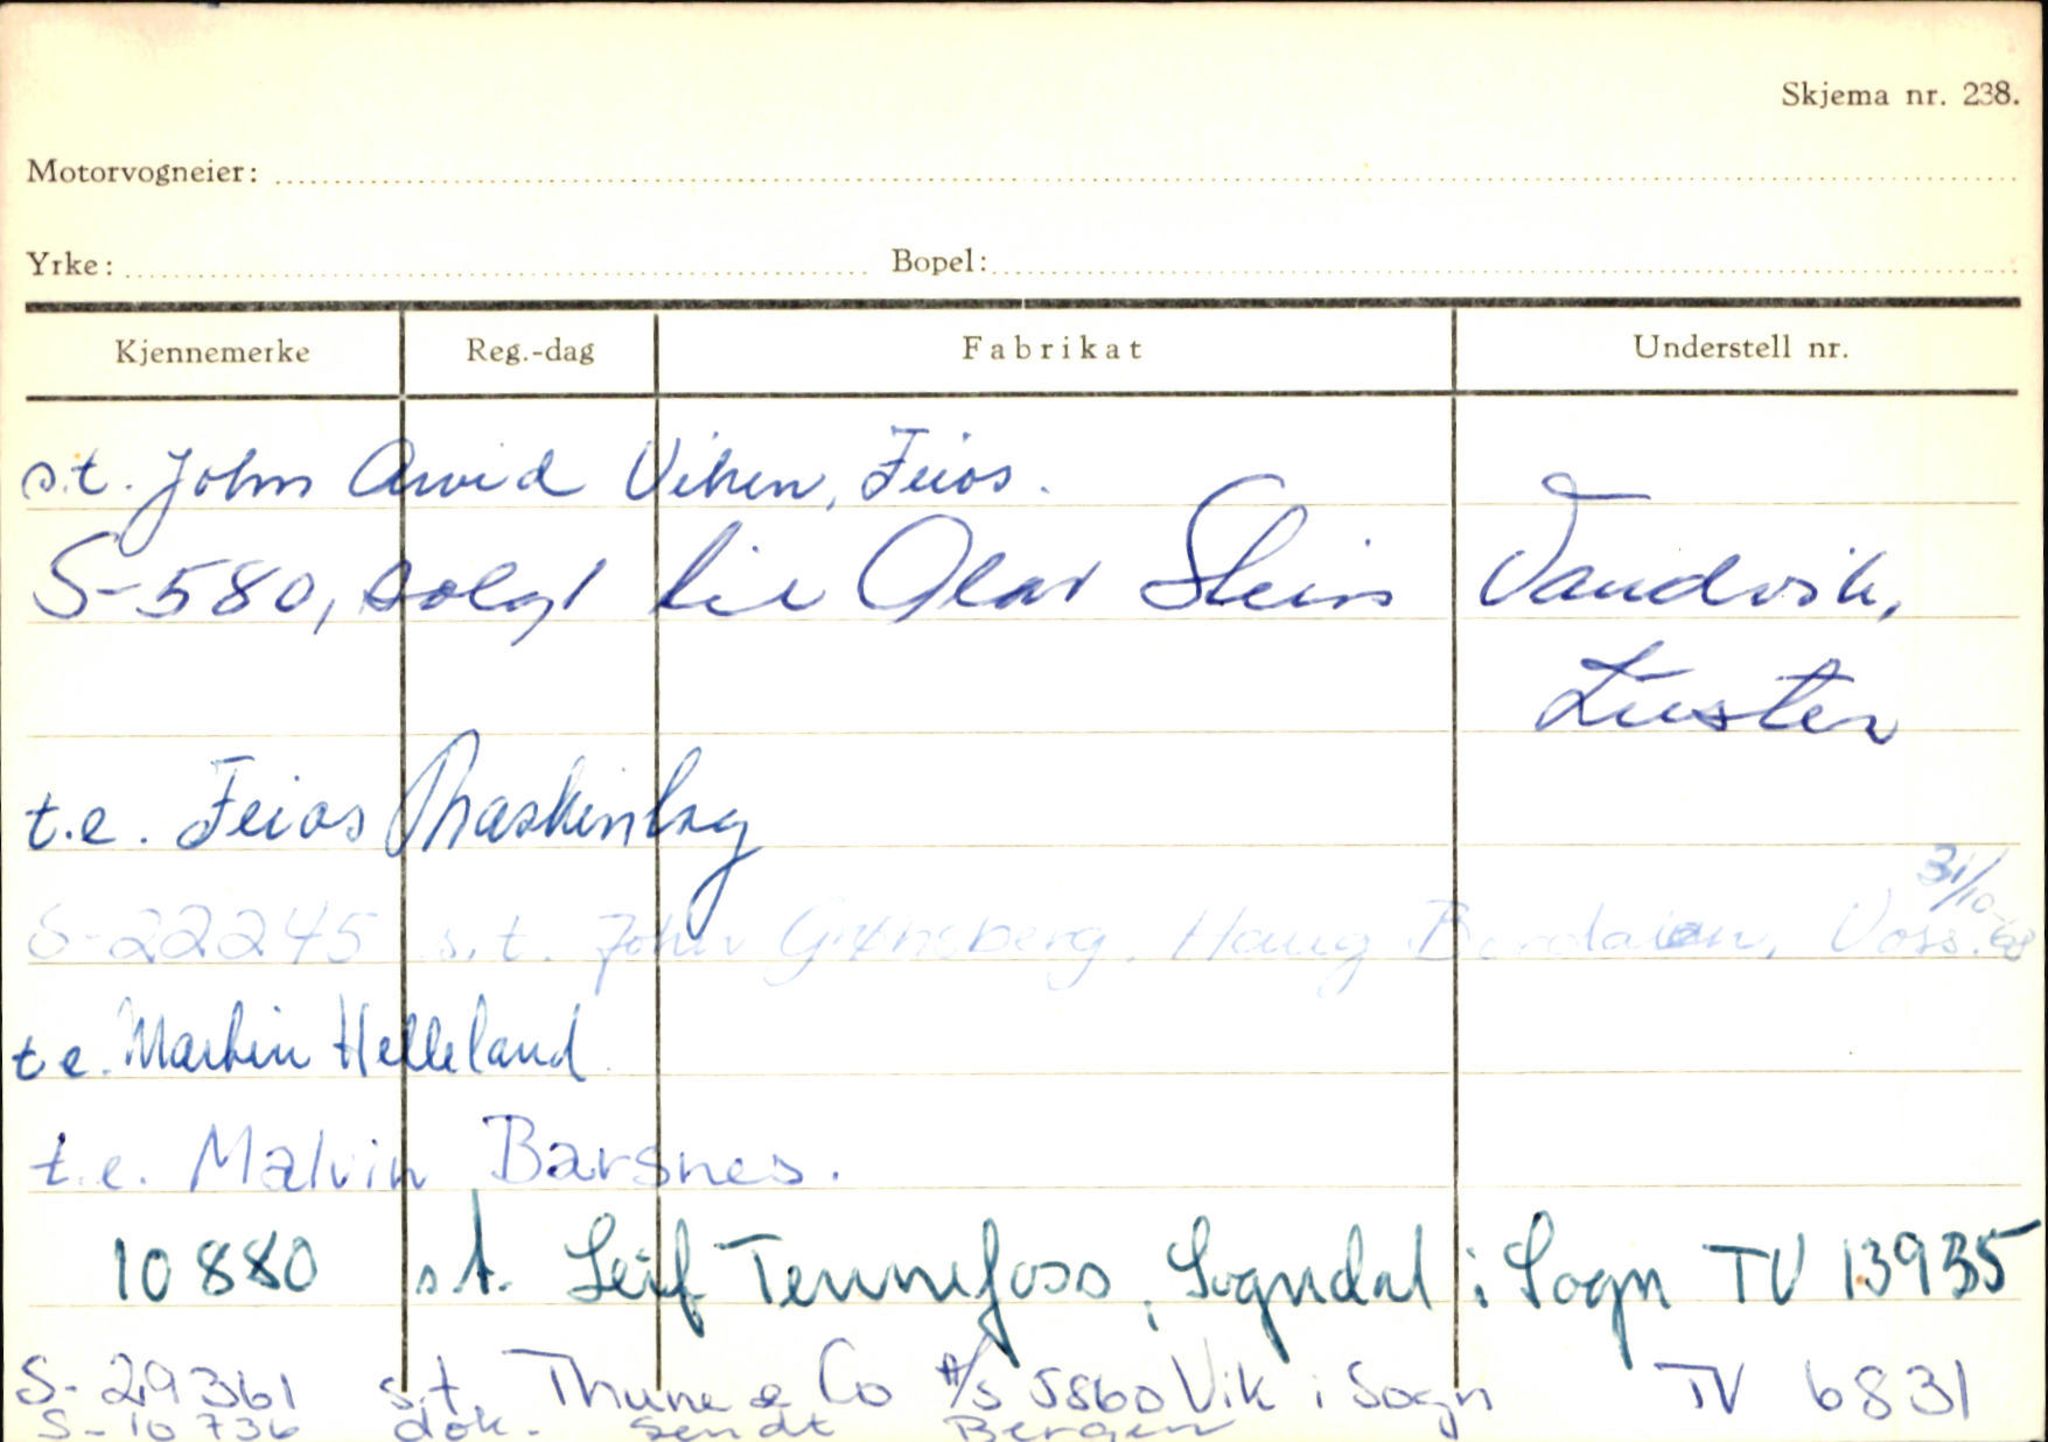 Skjema nr. 238.
Motorvogneier:
Yrke: Bopel:
Kjennemerke Reg.-dag Fabrikat Understell nr.
s.t. John Arvid Vihen, Feios.
S-580, solgt til Olav Stein Vandvik,
Luster
t.e. Feios Maskinlag
31/10-68
S-22245 s.t. John Grønsberg, Haug Bordalen, Voss.
t.e. Martin Helleland
t.e. Malvin Barsnes.
10880 s.t. Leif Tennefoss, Sogndal i Sogn TV 13935
S-29361 s.t Thune & Co A/S 5860 Vik i Sogn TV 6831
S-10736 dok. sendt Bergen